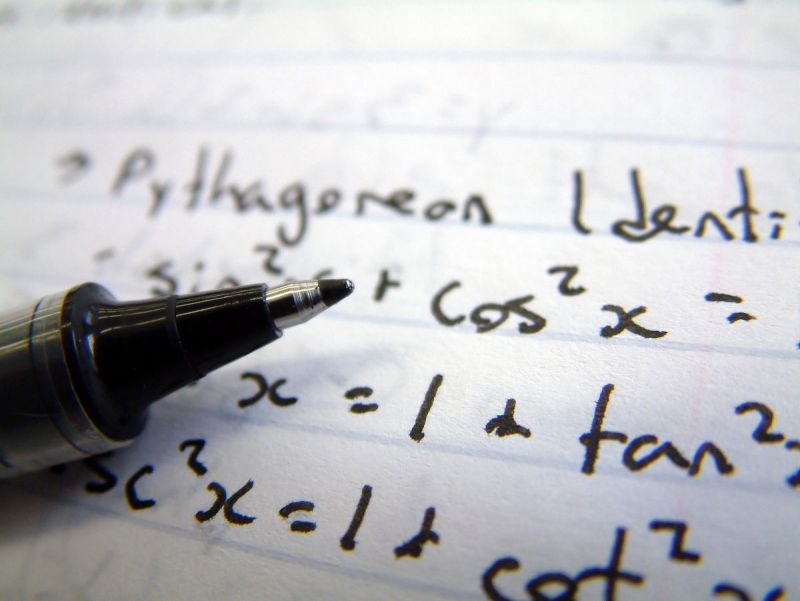 → Pythagorean Identi
sin²x + cos²x =
x = 1 + tan²x
sc²x = 1 + cot²x